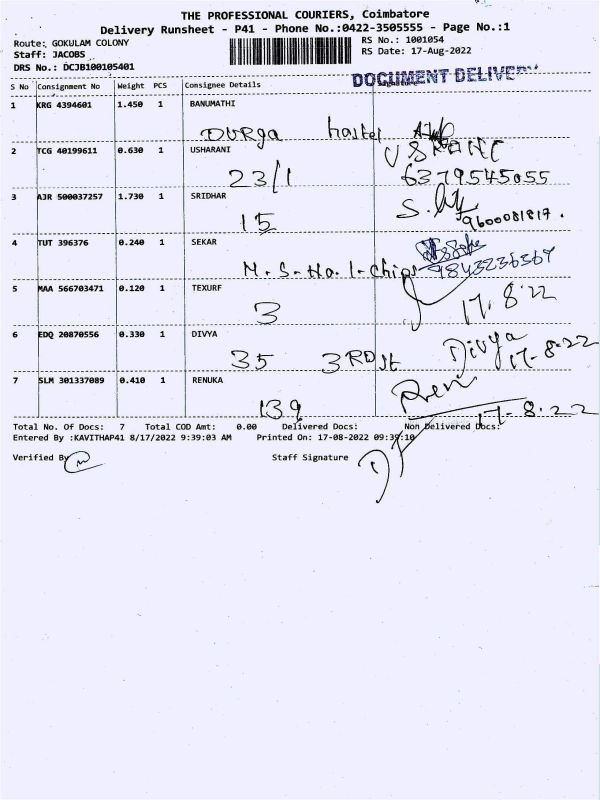 THE PROFESSIONAL COURIERS, Coimbatore
Delivery Runsheet - P41 - Phone No.:0422-3505555 - Page No.:1
Route: GOKULAM COLONY RS No.: 1001054
Staff: JACOBS RS Date: 17-Aug-2022
DRS No.: DCJB100105401
DOCUMENT DELIVERY
S No Consignment No Weight PCS Consignee Details Signature
1 KRG 4394601 1.450 1 BANUMATHI
DURGA hostel
2 TCG 40199611 0.630 1 USHARANI USHARANI
23/1 6379545055
3 AJR 500037257 1.730 1 SRIDHAR
15 9600081817.
4 TUT 396376 0.240 1 SEKAR
M.S-No.1-chips 9843236367
5 MAA 566703471 0.120 1 TEXURF
3 17.8.22
6 EDQ 20870556 0.330 1 DIVYA Divya
35 3RD St 17-8-22
7 SLM 301337089 0.410 1 RENUKA Ren
139 17-8-22
Total No. Of Docs: 7 Total COD Amt: 0.00 Delivered Docs: Non Delivered Docs:
Entered By :KAVITHAP41 8/17/2022 9:39:03 AM Printed On: 17-08-2022 09:39:10
Verified By Staff Signature